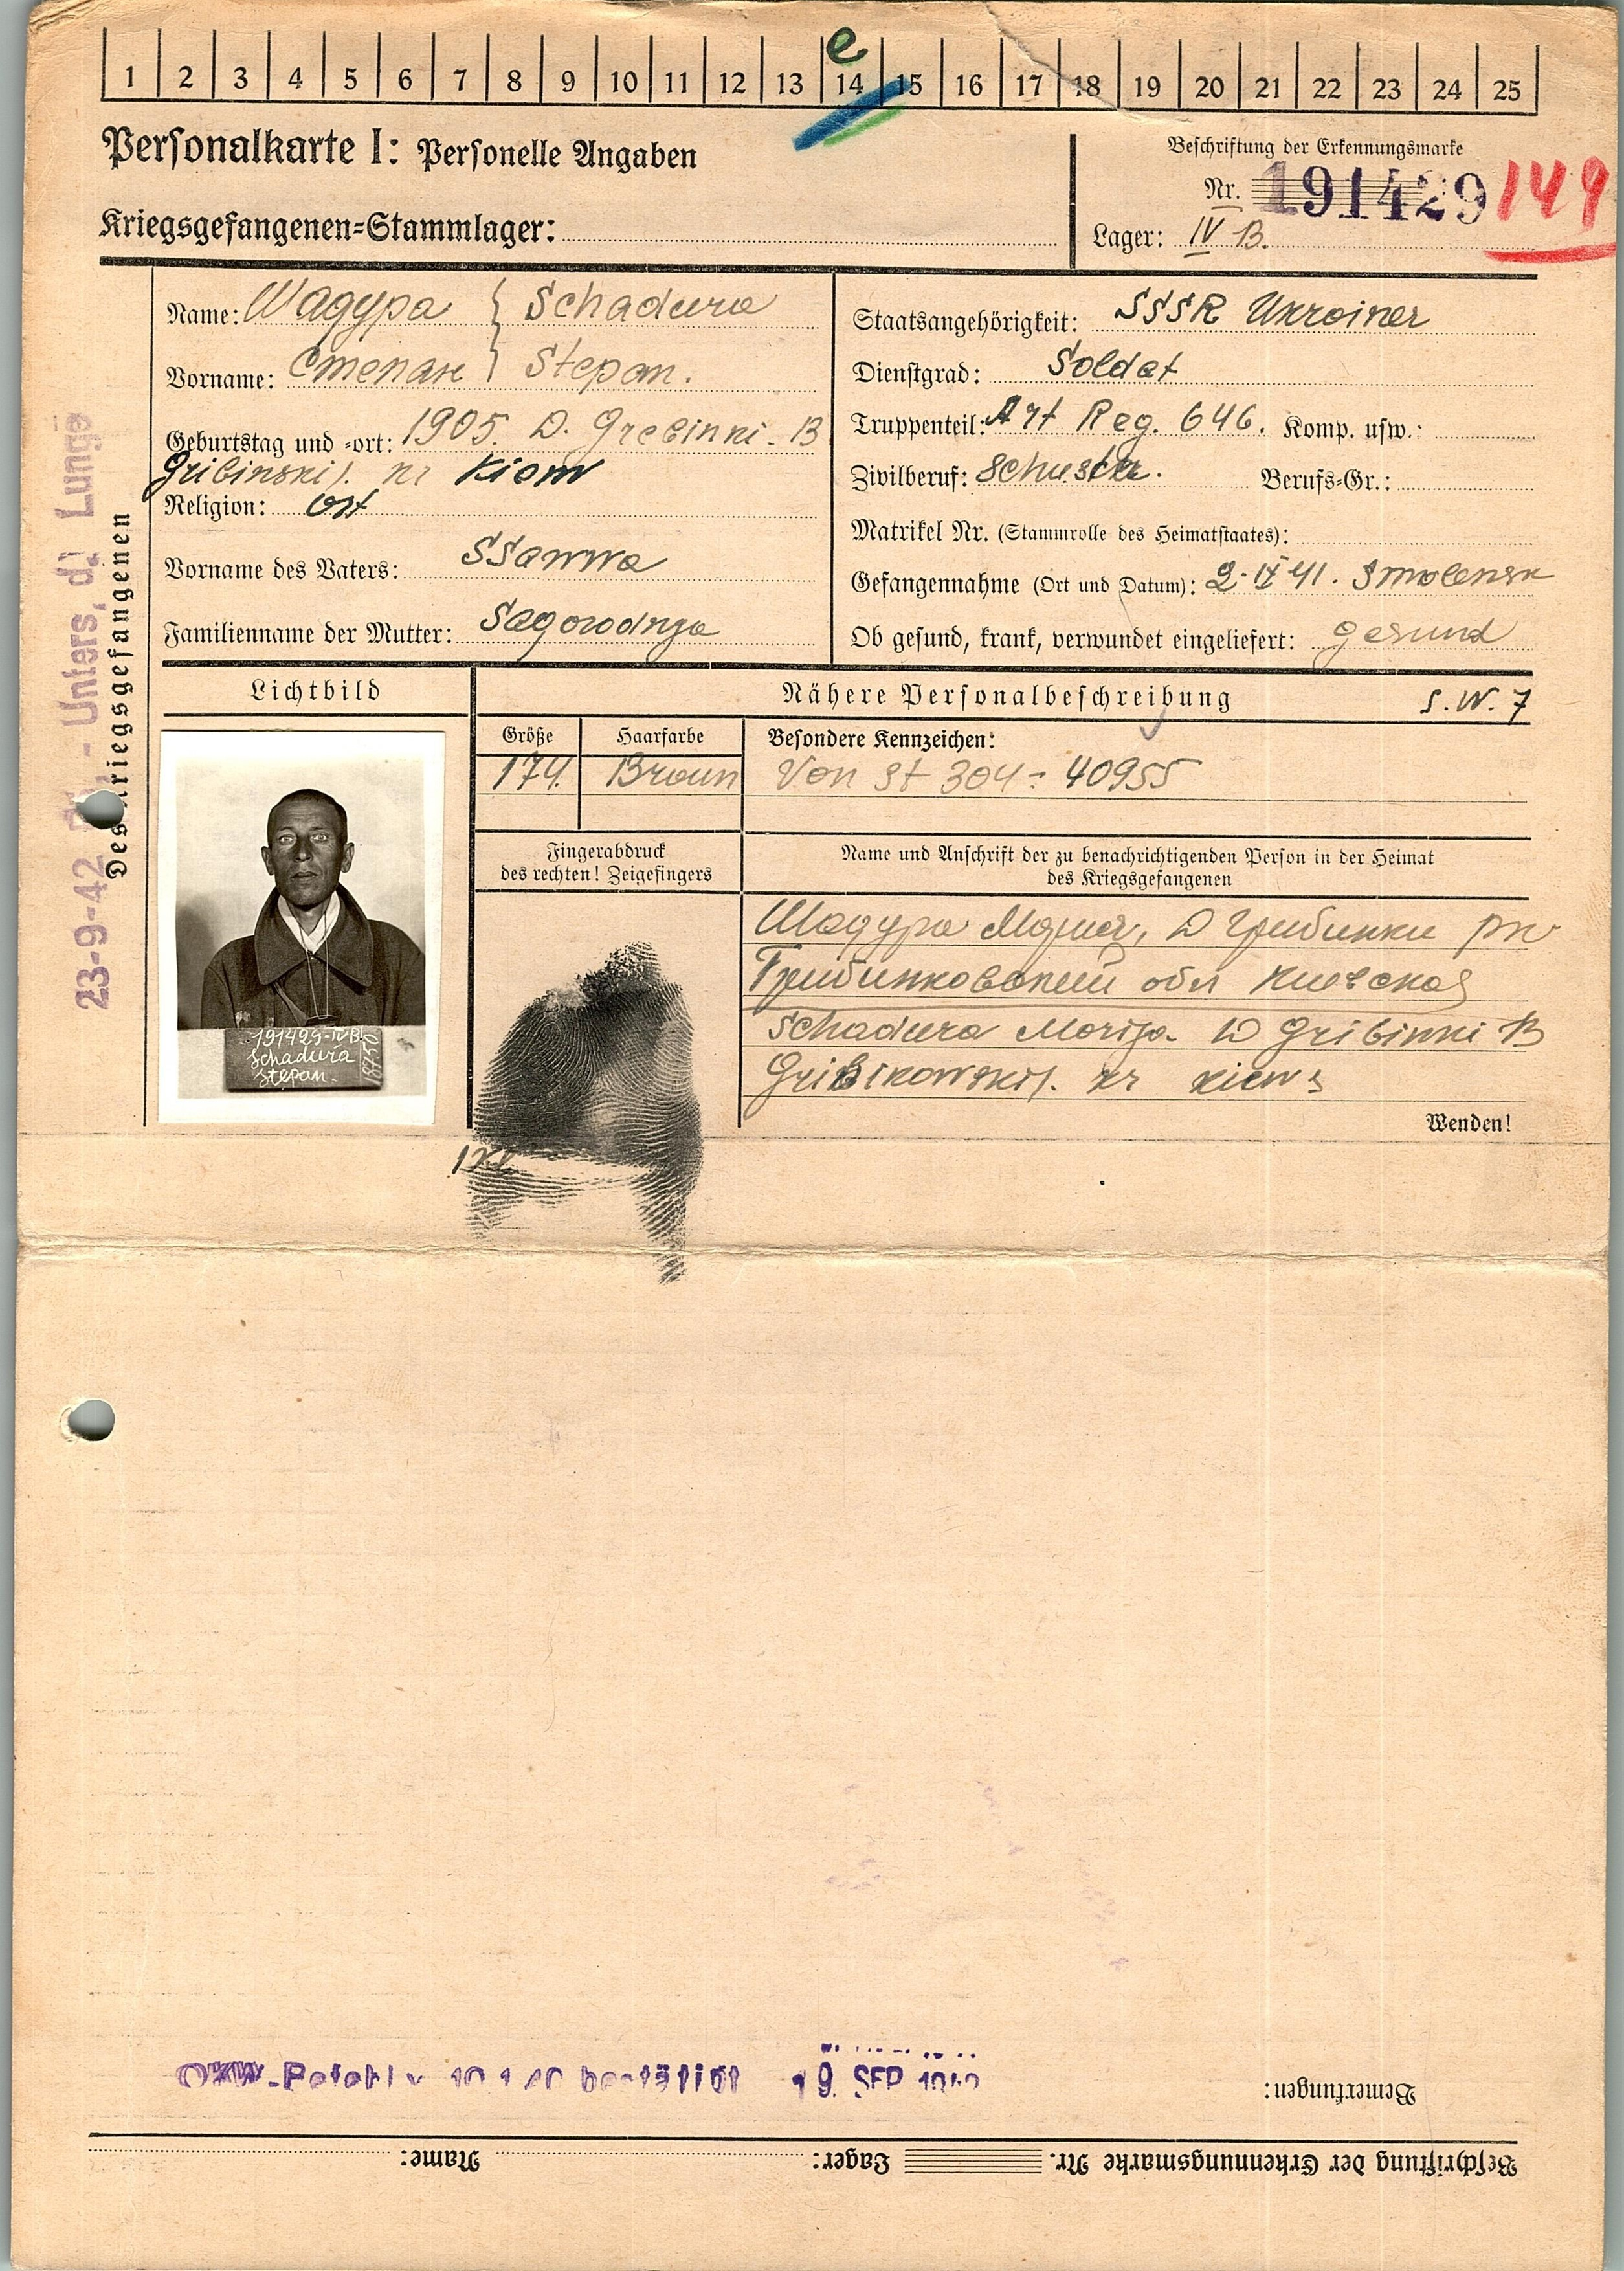 1 2 3 4 5 6 7 8 9 10 11 12 13 14 15 16 17 18 19 20 21 22 23 24 25
e
Personalkarte I: Personelle Angaben
Beschriftung der Erkennungsmarke
Nr. 191429 149
Kriegsgefangenen=Stammlager:
Lager: IV B.
Name: Шадура } Schadura
Vorname: Степан } Stepan.
Geburtstag und =ort: 1905. D. Grebinki. B
Gribinskij. kr Kiew
Religion: ort
Vorname des Vaters: SSawwa
Familienname der Mutter: Sagorodnja
Staatsangehörigkeit: SSSR Ukrainer
Dienstgrad: Soldat
Truppenteil: Art Reg. 646. Komp. usw.:
Zivilberuf: Schuster. Berufs=Gr.:
Matrikel Nr. (Stammrolle des Heimatstaates):
Gefangennahme (Ort und Datum): 2. IX 41. Smolensk
Ob gesund, krank, verwundet eingeliefert: gesund
Des Kriegsgefangenen
23-9-42 - Unters. d. Lunge
Lichtbild
Nähere Personalbeschreibung
S. W. 7
Größe
Haarfarbe
Besondere Kennzeichen:
174. Braun Von St 304 = 40955
Fingerabdruck
des rechten! Zeigefingers
Name und Anschrift der zu benachrichtigenden Person in der Heimat
des Kriegsgefangenen
Шадура Д Грибинки рн
обл Киевская
Schadura Marija. D Gribinki B
Gribikowskij. kr Kiew
191429-IVB
Schadura
Stepan.
18750
Wenden!
OKW-Befehl v. bestätigt 19. SEP. 1942
Bemerkungen:
Beschriftung der Erkennungsmarke Nr. Lager: Name: